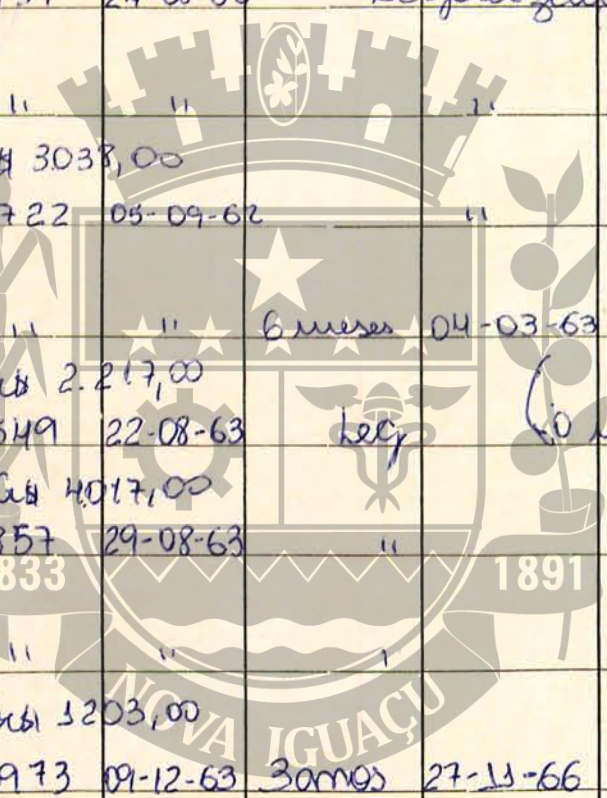 " " "
3038,00
722 05-09-62 "
" " 6 meses 04-03-63
2.217,00
549 22-08-63 Leg
4017,00
857 29-08-63 "
833 1891
" " "
1203,00
973 09-12-63 3 anos 27-11-66
NOVA IGUAÇU